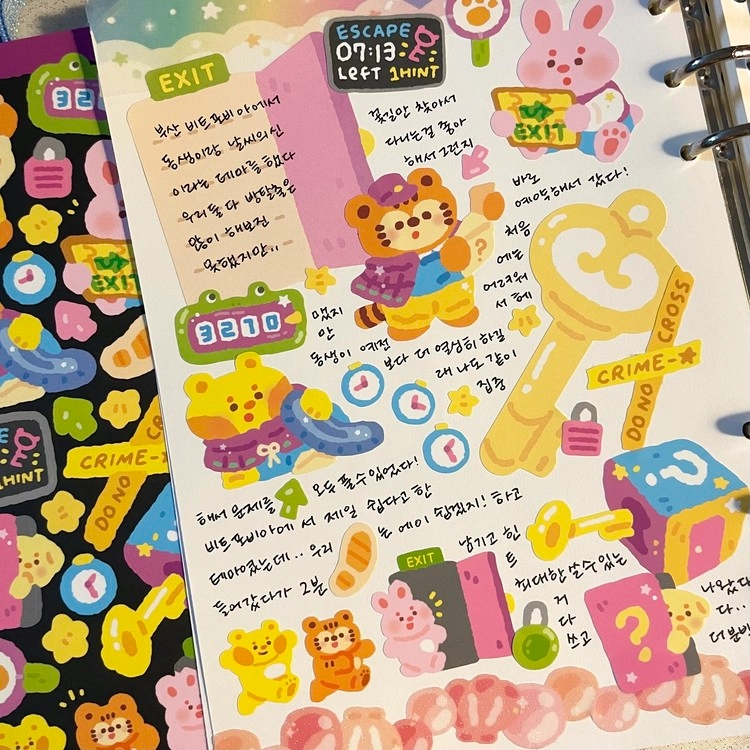 ESCAPE
07:13
LEFT 1HINT
EXIT
EXIT
부산 비트포비아에서
동생이랑 날씨의신
이라는 테마를 했다
우리둘 다 방탈출은
많이 해보진
못했지만..
꽃길만 찾아서
다니는걸 좋아
해서 그런지
바로
예약해서 갔다!
처음
에는
어려워
서 헤
맸지
만
동생이 예전
보다 더 열심히 하길
래 나도 같이
집중
3270
CRIME-
DO NO CROSS
해서 문제를 모두 풀 수 있었다!
비트포비아에서 제일 쉽다고 한
테마였는데.. 우리는 에이 쉽겠지! 하고
들어갔다가 2분 남기고 힌트
최대한 쓸수있는
거
다
쓰고
나왔다
다..
더분발
EXIT
?
?
?
32
EXIT
CRIME-
DO NO CR
1HINT